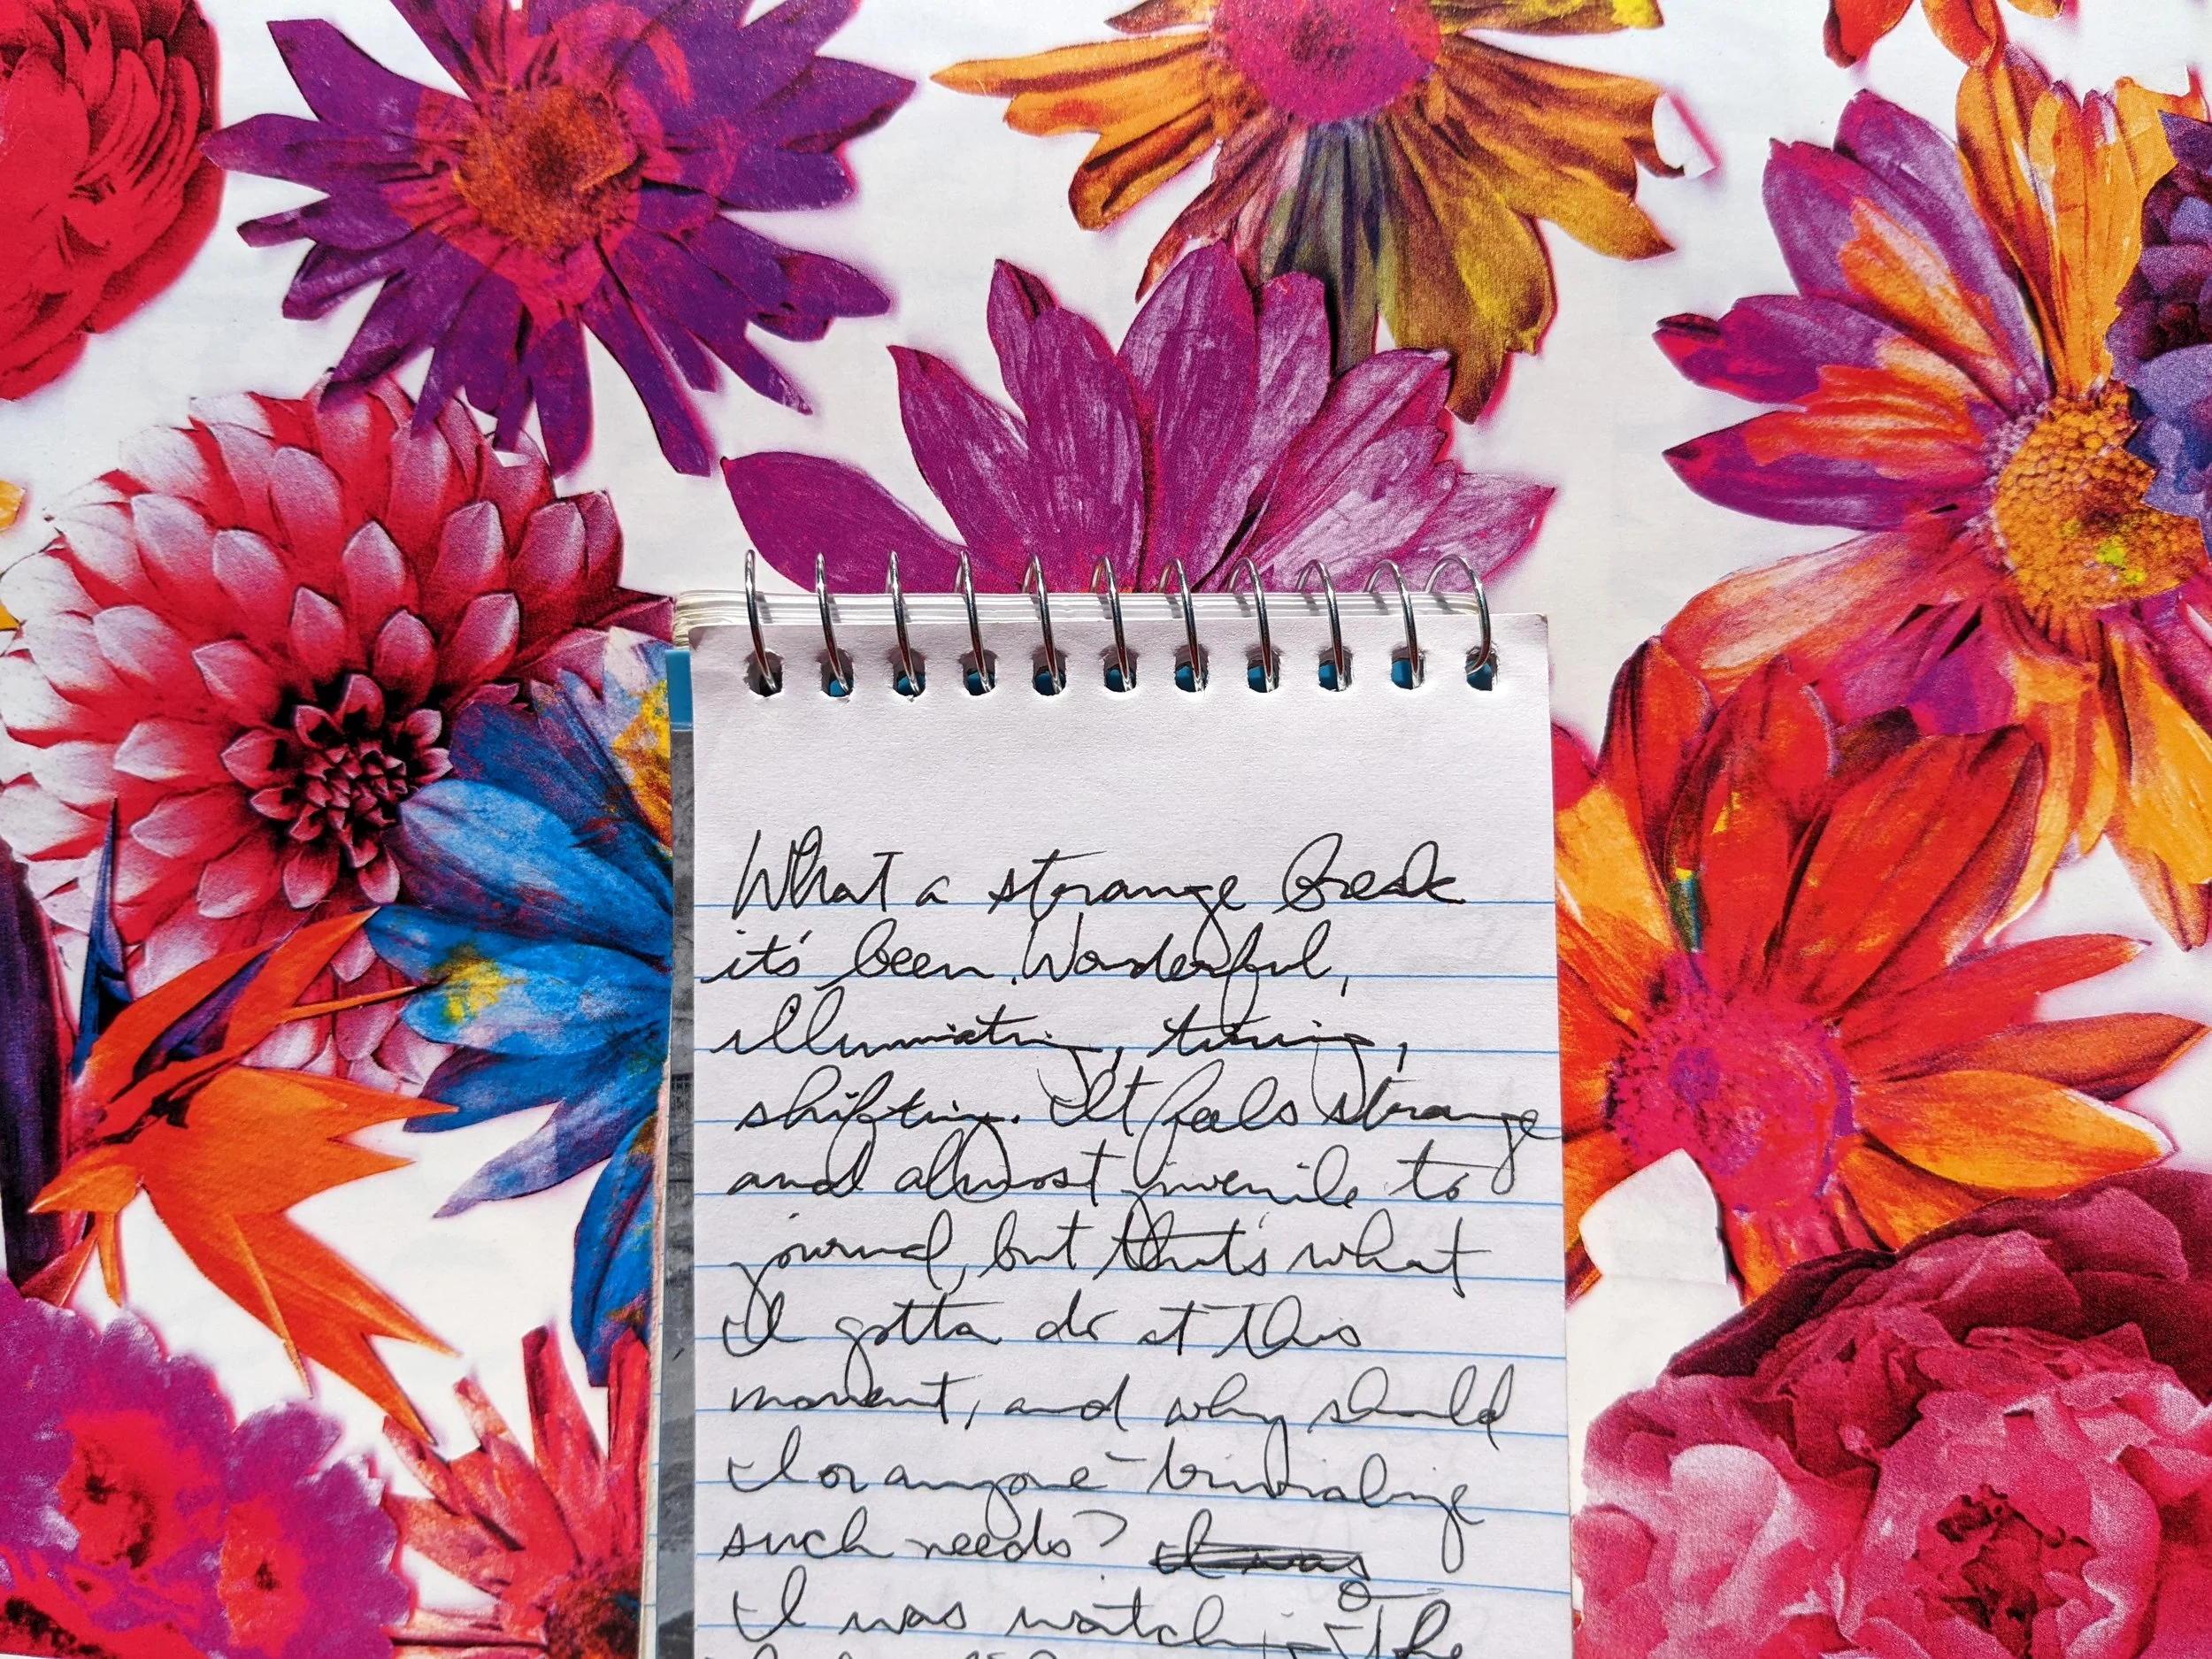 What a strange break
it's been. Wonderful,
illuminating, tiring,
shifting. It feels strange
and almost juvenile to
journal, but that's what
I gotta do at this
moment, and why should
I or anyone trivialize
such needs? I was
I was watching the